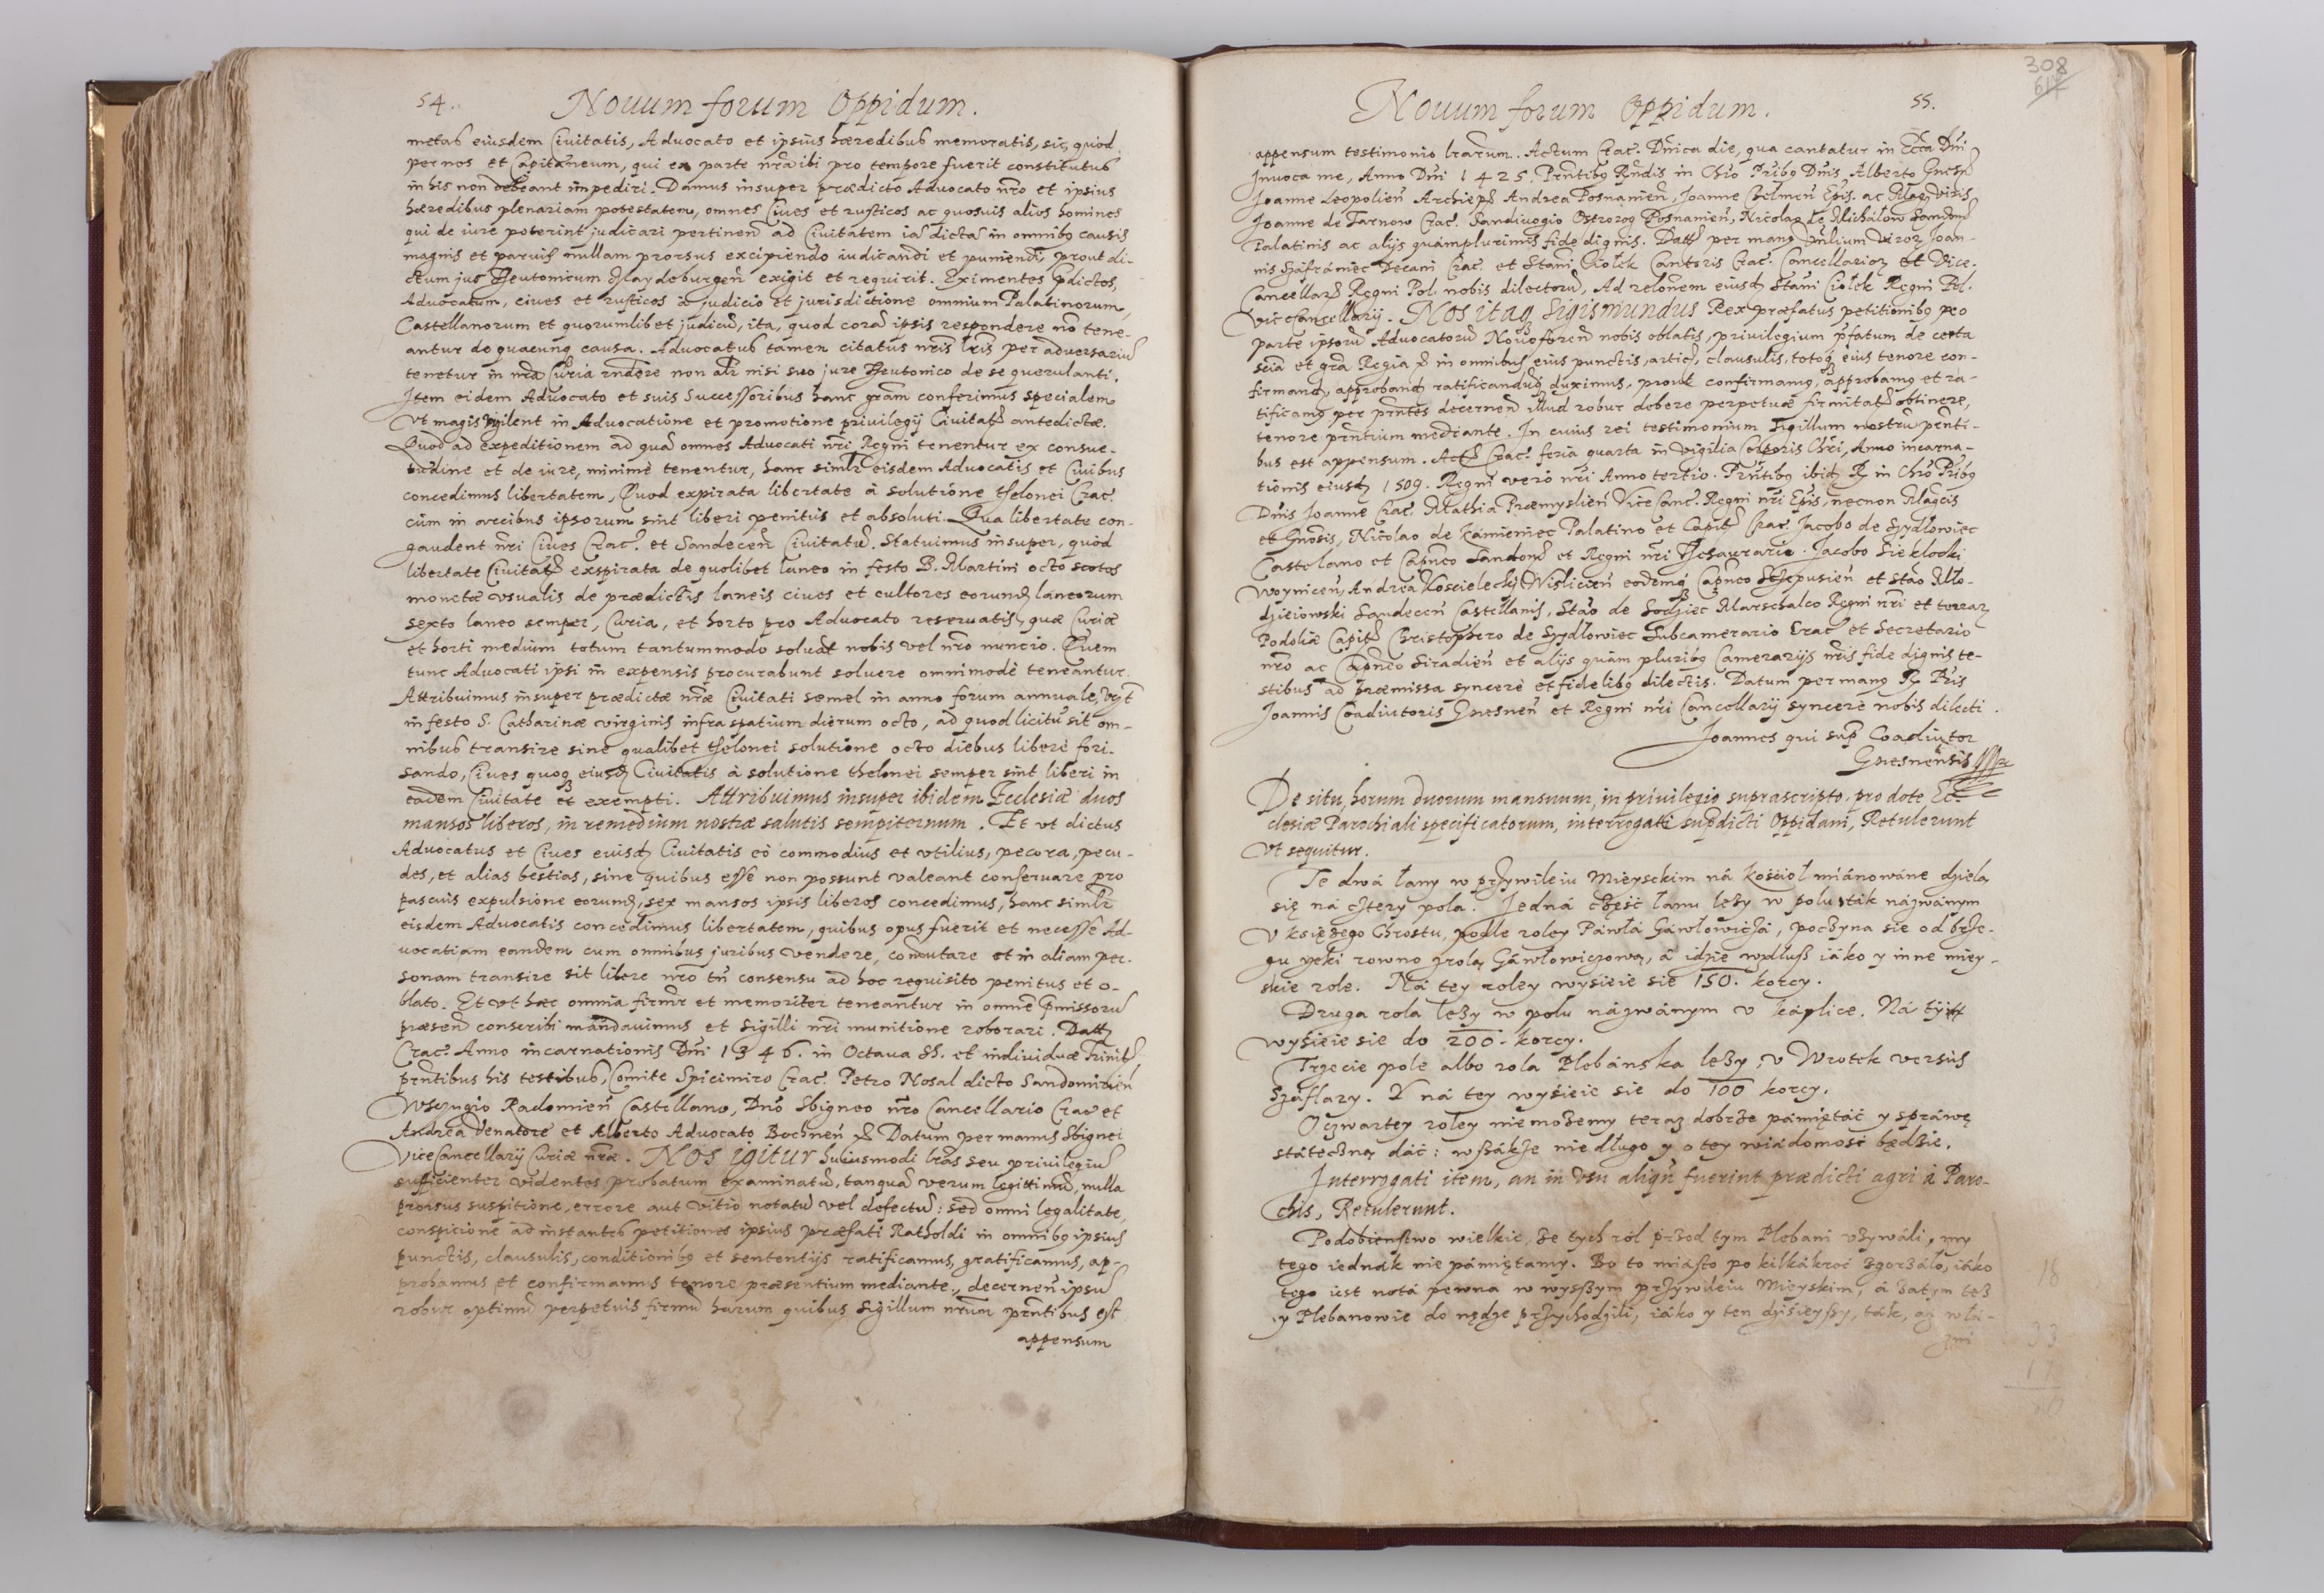 54.
Novum forum Oppidum.
metas eiusdem Civitatis, Advocato et ipsius hæredibus memoratis, sic quod
per nos et Capitaneum, qui ex parte nr̃a ibi pro tempore fuerit constitutus
in his non debeant impediri. Damus insuper prædicto Advocato nr̃o et ipsius
hæredibus plenariam potestatem, omnes Cives et rusticos ac quosvis alios homines
qui de iure poterint judicari pertineñ ad Civitatem iã dictã in omnibq causis
magnis et parvis nullam prorsus excipiendo iudicandi et puniendi, prout di-
ctum jus Theutonicum Maydeburgeñ exigit et requirit. Eximentes p̃dictos,
Advocatum, cives et rusticos à judicio et jurisdictione omnium Palatinorum,
Castellanorum et quorumlibet judicũ, ita, quod corã ipsis respondere nõ tene-
antur de quacunq causa. Advocatus tamen citatus nr̃is lr̃is per adversariũ
tenetur in nr̃a Curia rñdere non alr̃ nisi suo jure Theutonico de se querulanti.
Item eidem Advocato et suis Successoribus hanc gr̃am conferimus specialem
Vt magis vigilent in Advocatione et promotione privilegij Civitat̃ antedictæ.
Quod ad expeditionem ad quã omnes Advocati nr̃i Regni tenentur ex consue-
tudine et de iure, minimè tenentur, hanc simlr̃ eisdem Advocatis et Civibus
concedimus libertatem, Quod expirata libertate à solutione thelonei Crac.
cùm in arcibus ipsorum sint liberi penitùs et absoluti. Qua libertate con-
gaudent nr̃i Cives Crac. et Sandeceñ Civitatũ. Statuimus insuper, quòd
libertate Civitat̃ exspirata de quolibet laneo in festo B. Martini octo scotos
monetæ vsualis de prædictis laneis cives et cultores eorund laneorum
sexto laneo semper, Curia, et horto pro Advocato reservatis, quæ Curiæ
et horti medium totum tantummodo solvat nobis vel nr̃o nuncio. Quem
tunc Advocati ipsi in expensis procurabunt soluere omnimodè teneantur.
Attribuimus insuper prædictæ nr̃æ Civitati semel in anno forum annuale, vz̃
in festo S. Catharinæ virginis infra spatium dierum octo, ad quod licitũ sit om-
nibus transire sine qualibet thelonei solutione octo diebus liberè fori-
sando, Cives quoq eiusd Civitatis à solutione thelonei semper sint liberi in
eadem Civitate et exempti. Attribuimus insuper ibidem Ecclesiæ duos
mansos liberos, in remedium nostræ salutis sempiternum. Et vt dictus
Advocatus et Cives eiusd Civitatis eò commodius et vtilius, pecora, pecu-
des, et alias bestias, sine quibus esse non possunt valeant conservare pro
pascuis expulsione eorund, sex mansos ipsis liberos concedimus, hanc simlr̃
eisdem Advocatis concedimus libertatem, quibus opus fuerit et necesse Ad-
vocatiam eandem cum omnibus juribus vendere, comutare et in aliam per-
sonam transire sit libere nr̃o tñ consensu ad hoc requisito penitus et o-
blato. Et vt hæc omnia firmr̃ et memoriter teneantur in omne p̃missorũ
præseñ conscribi mandavimus et sigilli nr̃i munitione roborari. Datt
Crac. Anno incarnationis Dñi 1346. in Octava SS. et individuæ Trinit̃
prñtibus his testibus, Comite Spicimiro Crac. Petro Nosal dicto Sandomirieñ
Wsczugio Radomieñ Castellano, Dño Sbigneo nr̃o Cancellario Crac et
Andrea Venatore et Alberto Advocato Bochneñ & Datum per manus Sbignei
ViceCancellarij Curiæ nr̃æ. Nos igitur huiusmodi lr̃as seu privilegiũ
sufficienter videntes probatum examinatũ, tanquã verum legittimũ, nulla
prorsus suspitione, errore aut vitio notatũ vel defectũ: sed omni legalitate,
conspicione ad instantes petitiones ipsius præfati Ratholdi in omnibq ipsius
punctis, clausulis, conditionibq et sententijs ratificamus, gratificamus, ap-
probamus et confirmamus tenore præsentium mediante, decerneñ ipsũ
robur optinũ perpetuis firmũ harum quibus Sigillum nr̃um prñtibus est
appensum
308
Novum forum Oppidum.
55.
appensum testimonio lr̃arum. Actum Crac. Dñica die, qua cantatur in Eccã Dñi
Invoca me, Anno Dñi 1425. Prñtibq Rñdis in Chr̃o Pr̃ibq Dñis, Alberto Gnesñ
Joanne Leopolień Archiepĩs Andrea Posnanień, Joanne Chelmeñ Ep̃is. ac Magcis Viris
Joanne de Tarnow Crac. Sandivogio Ostrorog Posnanień, Nicolao de Michałow Sandom̃
Palatinis ac alijs quàmplurimis fide dignis. Datt per manq Vñlium viroz Joan-
nis Száfrániec Decani Crac. et Stani Ciołek Cantoris Crac. Cancellarioz et Vice.
Cancellar Regni Pol. nobis dilectorũ, Ad relonẽm eiusd Stani Ciołek Regni Pol.
viceCancellarij. Nos itaq Sigismundus Rex præfatus petitionibq pro
parte ipsorũ Advocatorũ Novoforeñ nobis oblatis, privilegium p̃fatum de certa
sciã et gr̃a Regia & in omnibus eius punctis, articũ, clausulis, totoq eius tenore con-
firmand, approband ratificandumq duximus, prout confirmamq, approbamq et ra-
tificamq per prñtes decerneñ illud robur debere perpetuæ firmitat̃ obtinere,
tenore prñtium mediante. In cuius rei testimonium Sigillum nostrũ prñti-
bus est appensum. Act Crac. feria quarta in vigilia Corporis Chr̃i, Anno incarna-
tionis eiusd 1509. Regni verò nr̃i Anno tertio. Prñtibq ibid R in Chr̃o Pr̃ibq
Dñis Joanne Crac. Mathia Præmyslień ViceCanc. Regni nr̃i Ep̃is, necnon Magcis
et Gñosis, Nicolao de Kámieniec Palatino et Capit̃ Crac. Jacobo de Szydłowiec
Castelano et Capñeo Sandom̃ et Regni nr̃i Thesaurario. Jacobo Siekloczki
Woynicen, Andrea Koscielecki Wislicień eodemq Capñeo Schepusień et Stão Mło-
dzieiowski Sandeceñ Castellanis, Stão de Sodziec Marschalco Regni nr̃i et terraz
Podoliæ Capit̃ Christophero de Szydłowiec Subcamerario Crac et Secretario
nr̃o ac Capñeo Siradień et alijs quàm pluribq Camerarijs nr̃is fide dignis te-
stibus ad præmissa syncerè et fidelibq dilectis. Datum per manq R Pr̃is
Joannis Coadiutoris Gnesneñ et Regni nr̃i Cancellarij syncerè nobis dilecti.
Joannes qui supr̃ Coadiutor
Gnesnensis
De situ, horum duorum mansuum, in privilegio suprascripto, pro dote Ec-
clesiæ Parochiali specificatorum, interrogati supr̃dicti Oppidani, Retulerunt
vt sequitur.
Te dwá łany w przywileiu Mieysckim ná kościoł miánowáne dzielą
się ná cztery polá. Jedná część łanu leży w polu ták názwánym
V księżego Chrostu, podle roley Páwłá Gáwłowiczá, poczyna sie od brze-
gu rzeki rowno z rolą Gáwłowiczową, á idzie wzdłuß iáko y inne miey-
skie role. Ná tey roley wysieie sie 150. korcy.
Druga rola leży w polu názwánym v káplice. Ná tý
wysieie sie do 200. korcy.
Trzecie pole albo rola Plebánska leży, v Wrotek versùs
Száflary. Y ná tey wysieie sie do 100 korcy.
O czwartey roley niemożemy teraz dobrze pámiętáć y spráwę
státeczną dáć: wßákże niedługo y o tey wiádomość będzie.
Interrogati item, an in vsu aliqñ fuerint prædicti agri à Paro-
chis, Retulerunt.
Podobieństwo wielkie, że tych ról przed tym Plebani vżywáli, my
tego iednák nie pámiętamy. Bo to miásto po kilkákroć zgorzáło, iáko
tego iest notá pewna w wyßßym przywileiu Mieyskim, á zatym też
y Plebanowie do nędze przychodzili, iáko y ten dzisieyßy, ták, aż włá-
zni
18
33